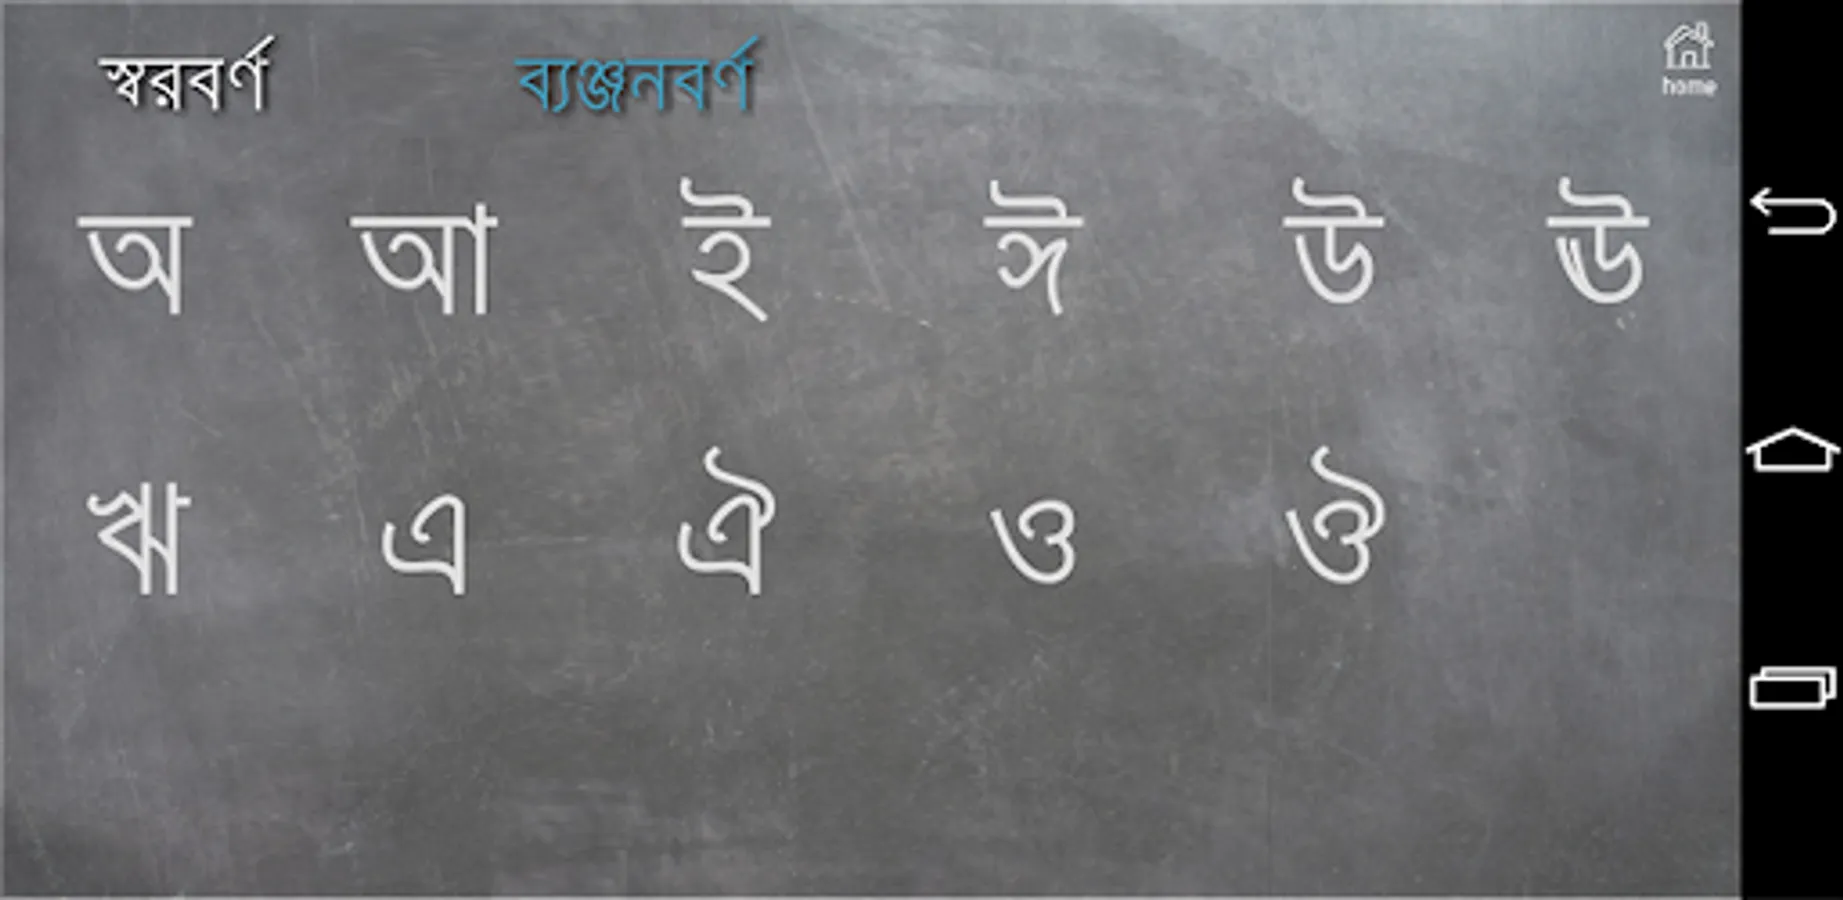 স্বরবর্ণ ব্যঞ্জনবর্ণ
home
অ আ ই ঈ উ ঊ
ঋ এ ঐ ও ঔ